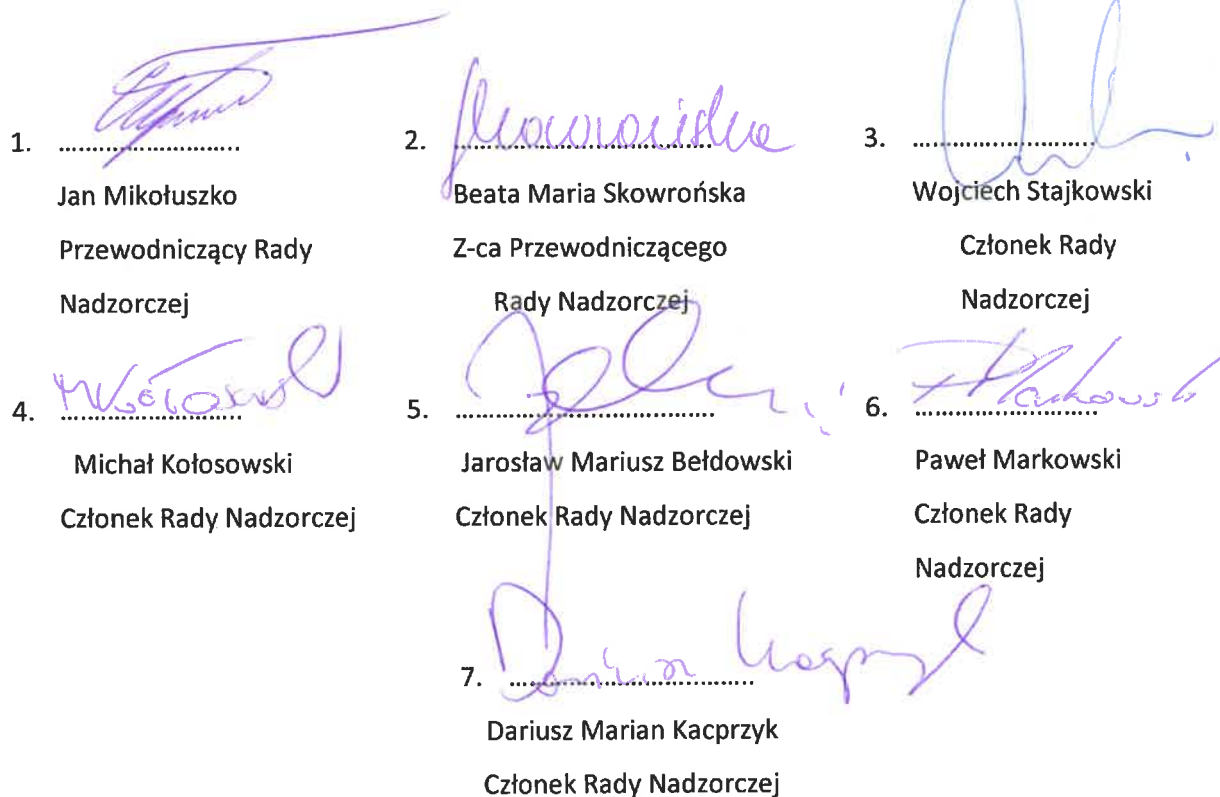 1. ..............................
Jan Mikołuszko
Przewodniczący Rady
Nadzorczej
2. ..............................
Beata Maria Skowrońska
Z-ca Przewodniczącego
Rady Nadzorczej
3. ..............................
Wojciech Stajkowski
Członek Rady
Nadzorczej
4. ..............................
Michał Kołosowski
Członek Rady Nadzorczej
5. ..............................
Jarosław Mariusz Bełdowski
Członek Rady Nadzorczej
6. ..............................
Paweł Markowski
Członek Rady
Nadzorczej
7. ..............................
Dariusz Marian Kacprzyk
Członek Rady Nadzorczej